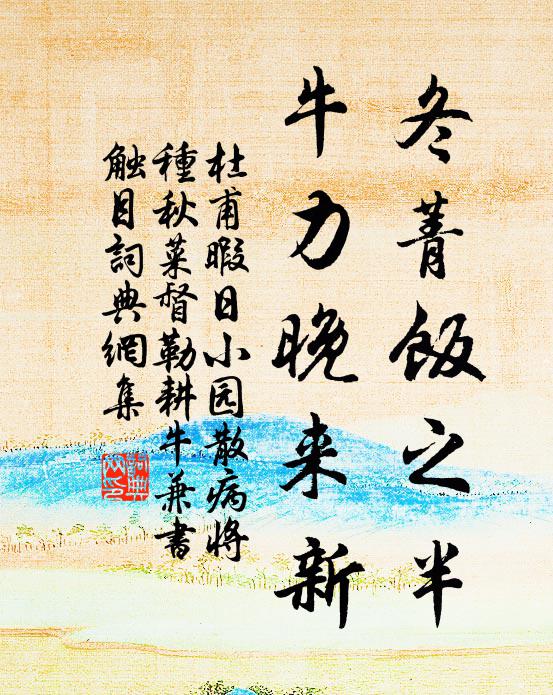 冬菁飯之半
牛力晚来新
杜甫暇日小园散病将
種秋菜督勒耕牛兼書
触目詞典網集